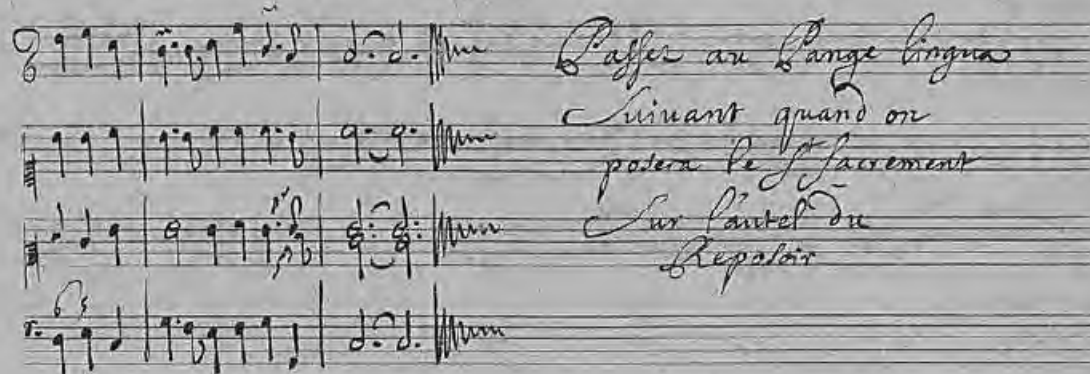 Passer au Pange lingua
Suiuant quand on
posera le St Sacrement
Sur l'autel du
Reposoir
6 5